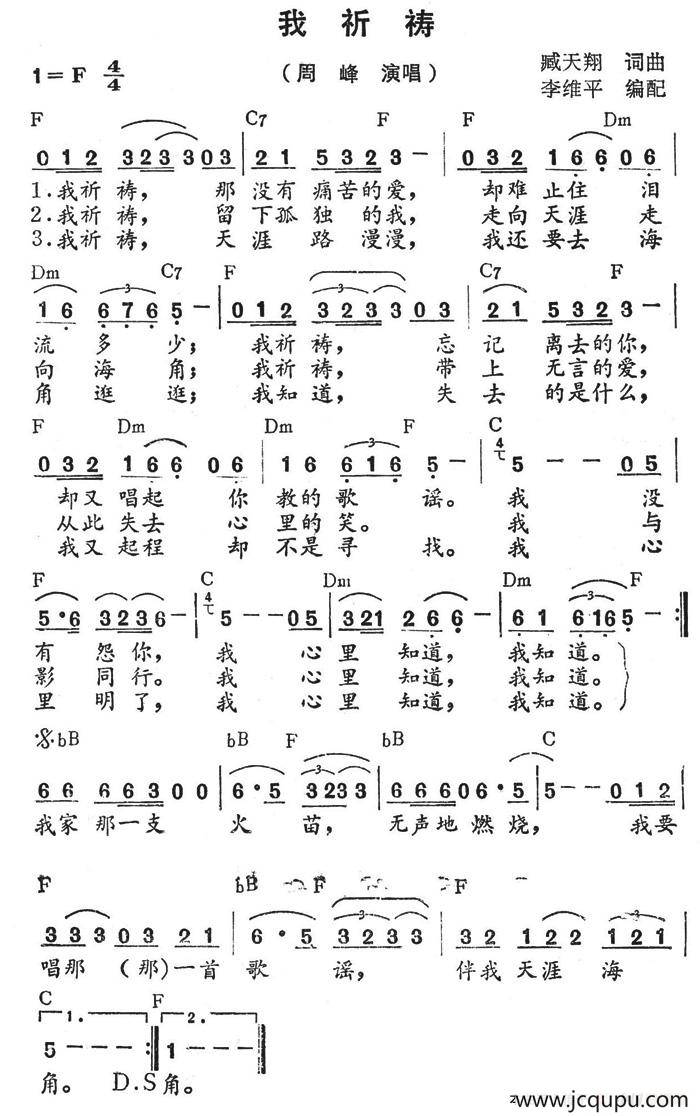 我祈祷
1=F 4/4
（周峰 演唱）
臧天翔 词曲
李维平 编配
F C7 F F Dm
0 1 2 3 2 3 3 0 3 | 2 1 5 3 2 3 — | 0 3 2 1 6 6 0 6
1.我祈祷， 那没有痛苦的爱， 却难止住泪
2.我祈祷， 留下孤独的我， 走向天涯走
3.我祈祷， 天涯路漫漫， 我还要去海
Dm C7 F C7 F
1 6 6 7 6 5 — | 0 1 2 3 2 3 3 0 3 | 2 1 5 3 2 3 —
流多少； 我祈祷， 忘记离去的你，
向海角； 我祈祷， 带上无言的爱，
角逛逛； 我知道， 失去的是什么，
F Dm Dm F C
0 3 2 1 6 6 0 6 | 1 6 6 1 6 5 — | 5 — — 0 5
却又唱起你教的歌谣。 我没
从此失去心里的笑。 我与
我又起程却不是寻找。 我心
F C Dm Dm F
5 · 6 3 2 3 6 — | 5 — — 0 5 | 3 2 1 2 6 6 — | 6 1 6 1 6 5 — :||
有怨你， 我心里知道， 我知道。
影同行。 我心里知道， 我知道。
里明了， 我心里知道， 我知道。
bB bB F bB C
6 6 6 6 3 0 0 | 6 · 5 3 2 3 3 | 6 6 6 0 6 · 5 | 5 — — 0 1 2
我家那一支火苗， 无声地燃烧， 我要
F bB F F
3 3 3 0 3 2 1 | 6 · 5 3 2 3 3 | 3 2 1 2 2 1 2 1
唱那（那）一首歌谣， 伴我天涯海
C F
1. 2.
5 — — :|| 1 — — ||
角。 D.S 角。
www.jcqupu.com